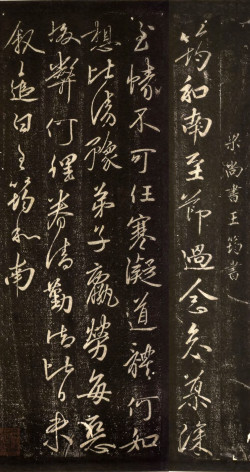 梁尚書王筠書
筠和南至節過念哀慕深
至情不可任寒凝道體何如
想比清豫弟子羸勞每惡
弊何理眷清勤比日未
叙追白王筠和南